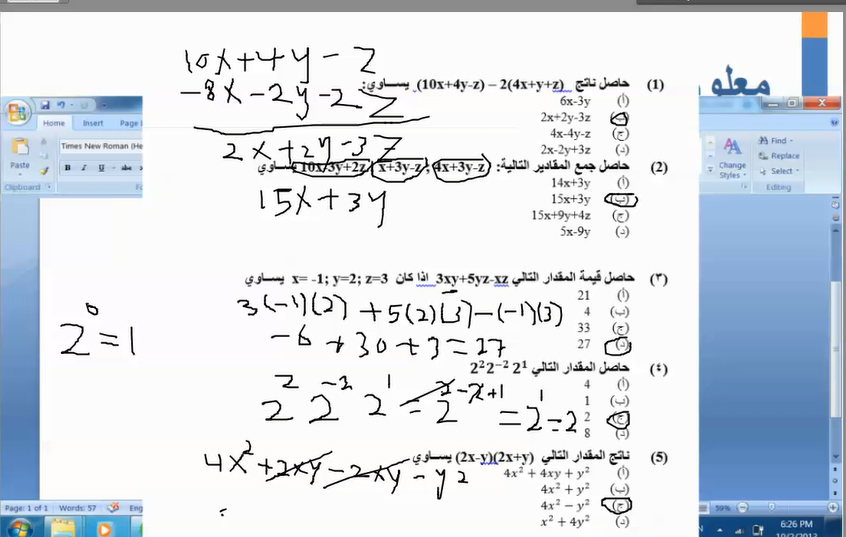 معلو
Home Insert Page
Times New Roman (He
Paste
B I U abe
Clipboard
A A
Change Styles
Find
Replace
Select
Editing
10x+4y-z
-8x-2y-2z
2x+2y-3z
(1) حاصل ناتج (10x+4y-z) – 2(4x+y+z) يساوي:
(أ) 6x-3y
2x+2y-3z
(ج) 4x-4y-z
(د) 2x-2y+3z
(2) حاصل جمع المقادير التالية: 4x+3y-z ; x+3y-z 10x/3y+2z يساوي
15x+3y
(أ) 14x+3y
(ب) 15x+3y
(ج) 15x+9y+4z
(د) 5x-9y
(٣) حاصل قيمة المقدار التالي 3xy+5yz-xz اذا كان x= -1; y=2; z=3 يساوي
3(-1)(2) + 5(2)(3) - (-1)(3)
-6 + 30 + 3 = 27
(أ) 21
(ب) 4
(ج) 33
(د) 27
2⁰ = 1
(٤) حاصل المقدار التالي 2² 2⁻² 2¹
2² 2⁻² 2¹ = 2²⁻²⁺¹ = 2¹ = 2
(أ) 4
(ب) 1
(ج) 2
(د) 8
(5) ناتج المقدار التالي (2x-y)(2x+y) يساوي
4x² + 2xy - 2xy - y2
=
(أ) 4x² + 4xy + y²
(ب) 4x² + y²
(ج) 4x² − y²
(د) x² + 4y²
Page: 1 of 1 Words: 57
59%
N
6:26 PM
10/2/2013